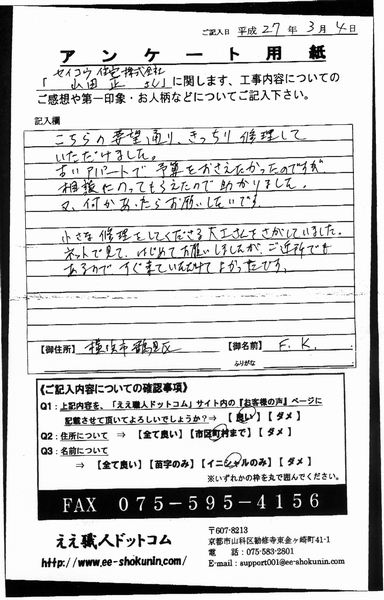 ご記入日 平成 27 年 3 月 4 日
アンケート用紙
セイコウ住宅株式会社
「山田 正 さん」に関します、工事内容についての
ご感想や第一印象・お人柄などについてご記入下さい。
記入欄
こちらの要望通り、きっちり修理して
いただけました。
古いアパートで予算をおさえたかったのですが、
相談にのってもらえたので助かりました。
又、何かあったらお願いしたいです。
小さな修理をしてくださる大工さんをさがしていました。
ネットで見て、はじめてお願いしましたが、ご近所でも
あるので、すぐ来ていただけてよかったです。
【御住所】 横浜市鶴見区 【御名前】 F. K.
ふりがな
《ご記入内容についての確認事項》
Q1：上記内容を、「ええ職人ドットコム」サイト内の『お客様の声』ページに
記載させて頂いてよろしいでしょうか？⇒ 【 良い 】 【 ダメ 】
Q2：住所について ⇒ 【全て良い】【市区町村まで】【 ダメ 】
Q3：名前について
⇒ 【全て良い】【苗字のみ】【イニシャルのみ】【 ダメ 】
※いずれかの枠を丸で囲んでください。
FAX 075-595-4156
ええ職人ドットコム
http://www.ee-shokunin.com/
〒607-8213
京都市山科区勧修寺東金ヶ崎町41-1
電話：075-583-2801
Eメール：support001@ee-shokunin.com